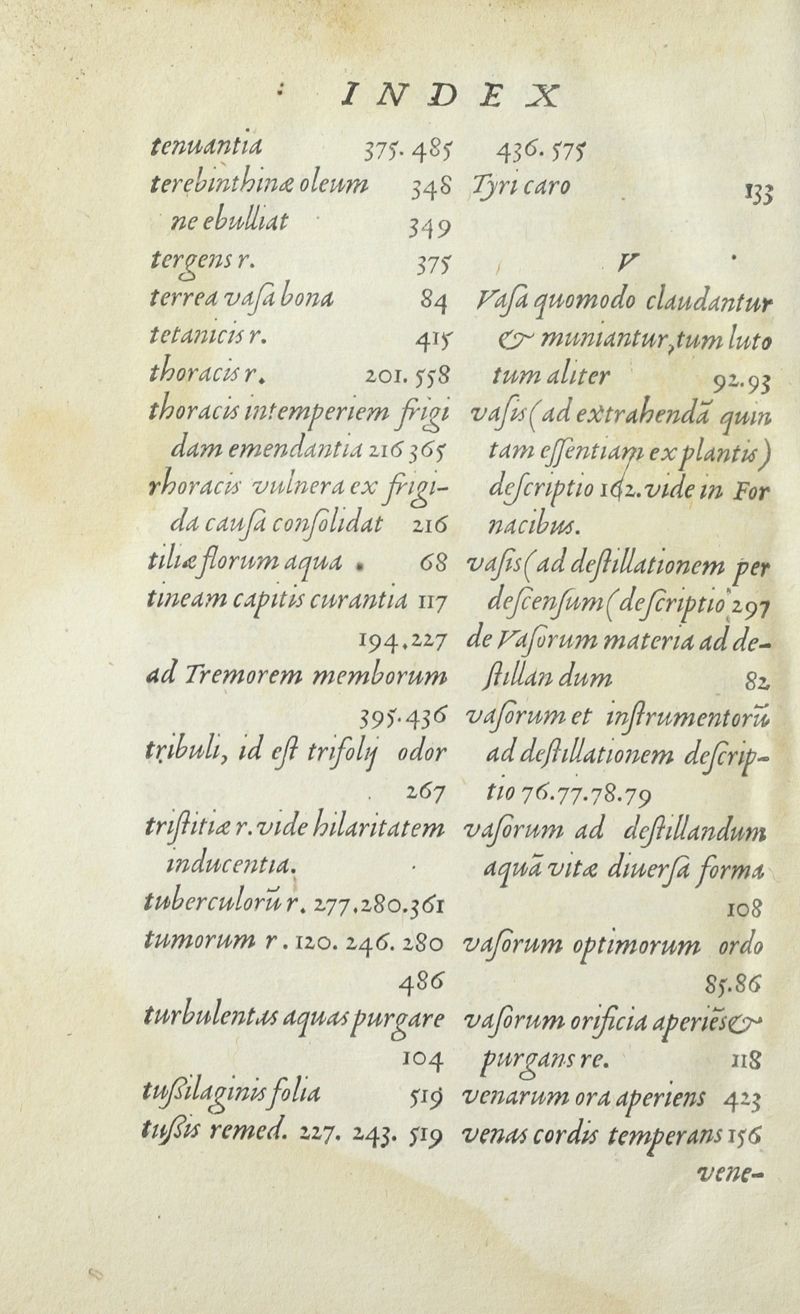 INDEX
tenuantia 375. 485
terebinthinæ oleum 348
ne ebulliat 349
tergens r. 375
terrea vaſa bona 84
tetanicis r. 415
thoracis r. 201. 558
thoracis intemperiem frigi
dam emendantia 216 365
rhoracis vulnera ex frigi-
da cauſa conſolidat 216
tiliæ florum aqua . 68
tineam capitis curantia 117
194.227
ad Tremorem memborum
395.436
tribuli, id eſt trifolij odor
267
triſtitiæ r. vide hilaritatem
inducentia.
tuberculorū r. 277.280.361
tumorum r. 120. 246. 280
486
turbulentas aquas purgare
104
tußilaginis folia 519
tußis remed. 227. 243. 519
436. 575
Tyri caro 133
V
Vaſa quomodo claudantur
& muniantur, tum luto
tum aliter 92.93
vaſis (ad extrahendā quin
tam eſſentiam ex plantis)
deſcriptio 162. vide in For
nacibus.
vaſis (ad deſtillationem per
deſcenſum (deſcriptio 297
de Vaſorum materia ad de-
ſtillan dum 82
vaſorum et inſtrumentorū
ad deſtillationem deſcrip-
tio 76.77.78.79
vaſorum ad deſtillandum
aquā vitæ diuerſa forma
108
vaſorum optimorum ordo
85.86
vaſorum orificia aperiēs &
purgans re. 118
venarum ora aperiens 423
venas cordis temperans 156
vene-